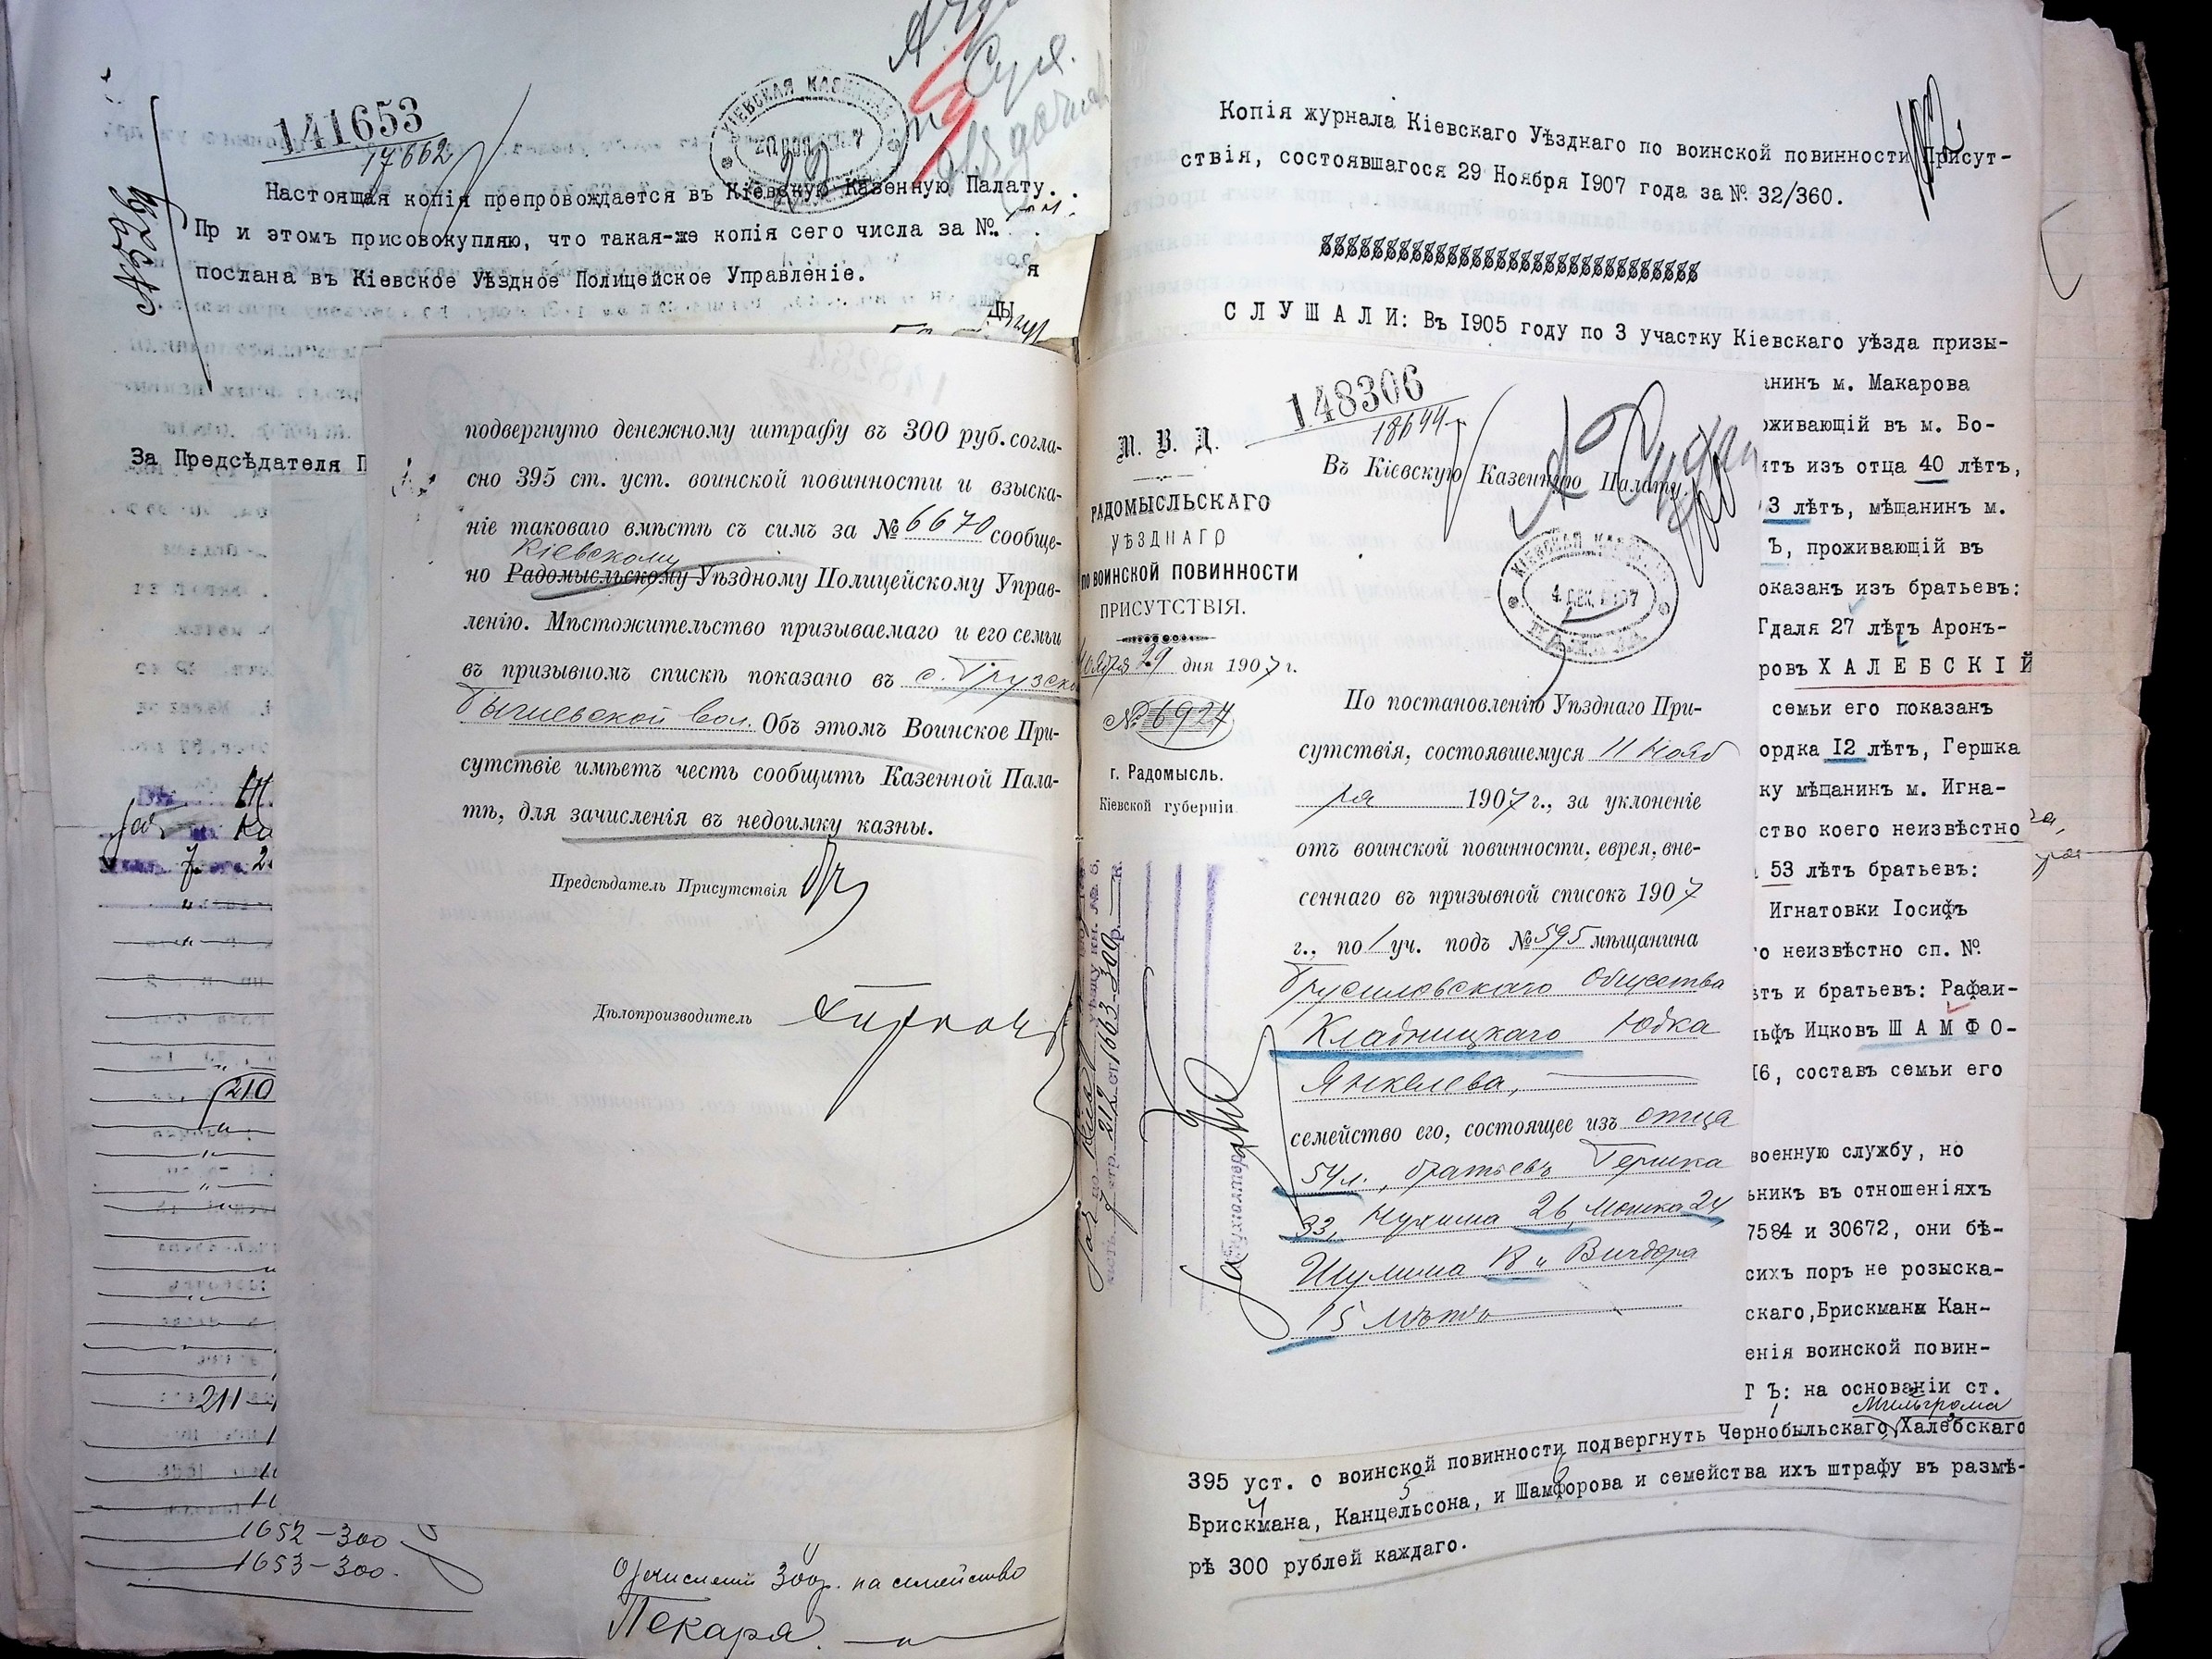 141653
17662
КІЕВСКАЯ КАЗЕННАЯ
Настоящая копія препровождается въ Кіевскую Казенную Палату.
Пр и этомъ присовокупляю, что такая-же копія сего числа за №
послана въ Кіевское Уѣздное Полицейское Управленіе.
За Предсѣдателя П
подвергнуто денежному штрафу въ 300 руб. согла-
сно 395 ст. уст. воинской повинности и взыска-
ніе таковаго вмѣстѣ съ симъ за № 6670 сообще-
Кіевскому
но Радомысльскому Уѣздному Полицейскому Управ-
ленію. Мѣстожительство призываемаго и его семьи
въ призывномъ спискѣ показано въ с. Грузско
Бышевской вол. Объ этомъ Воинское При-
сутствіе имѣетъ честь сообщить Казенной Пала-
тѣ, для зачисленія въ недоимку казны.
Предсѣдатель Присутствія
Дѣлопроизводитель
210
211
1652-300
1653-300.
Отчисленъ 300р. на семейство
Пекаря.
Копія журнала Кіевскаго Уѣзднаго по воинской повинности Присут-
ствія, состоявшагося 29 Ноября 1907 года за № 32/360.
С Л У Ш А Л И: Въ 1905 году по 3 участку Кіевскаго уѣзда призы-
148306
18644
М. В. Д.
РАДОМЫСЛЬСКАГО
УѢЗДНАГО
ПО ВОИНСКОЙ ПОВИННОСТИ
ПРИСУТСТВІЯ.
Ноября 29 дня 1907 г.
№ 6924
г. Радомысль.
Кіевской губерніи.
Въ Кіевскую Казенную Палату.
КІЕВСКАЯ КАЗЕННАЯ
4 ДЕК. 1907
ПАЛАТА
По постановленію Уѣзднаго При-
сутствія, состоявшемуся 11 Нояб
ря 1907 г., за уклоненіе
отъ воинской повинности, еврея, вне-
сеннаго въ призывной списокъ 1907
г., по 1 уч. подъ № 595 мѣщанина
Брусиловскаго Общества
Кладницкаго Юдка
Янкелева,
семейство его, состоящее изъ отца
54 л., братьевъ Гершка
33, Нухима 26, Мошка 24
Шулима 18 и Вигдора
15 лѣтъ
стр. 212 ст. 1663-300 р.
анинъ м. Макарова
оживающій въ м. Бо-
итъ изъ отца 40 лѣтъ,
3 лѣтъ, мѣщанинъ м.
Ъ, проживающій въ
оказанъ изъ братьевъ:
Гдаля 27 лѣтъ Аронъ-
ровъ Х А Л Е Б С К І Й
семьи его показанъ
ордка 12 лѣтъ, Гершка
ку мѣщанинъ м. Игна-
ство коего неизвѣстно
53 лѣтъ братьевъ:
Игнатовки Іосифъ
го неизвѣстно сп. №
ѣтъ и братьевъ: Рафаи-
льфъ Ицковъ Ш А М Ф О-
16, составъ семьи его
военную службу, но
ьникъ въ отношеніяхъ
7584 и 30672, они бѣ-
сихъ поръ не розыска-
скаго, Брискмана Кан-
енія воинской повин-
Г Ъ: на основаніи ст.
Мильгрома
395 уст. о воинской повинности подвергнуть Чернобыльскаго, Халебскаго
Брискмана, Канцельсона, и Шамфорова и семейства ихъ штрафу въ размѣ-
рѣ 300 рублей каждаго.